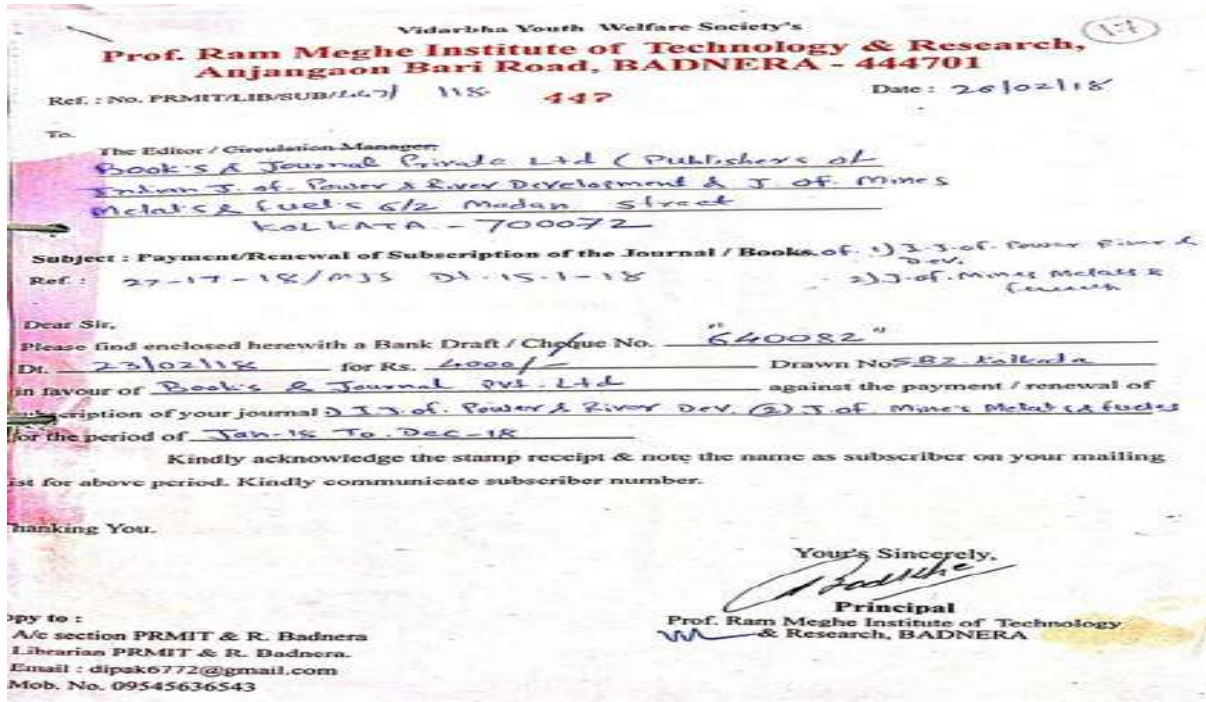 17
Vidarbha Youth Welfare Society's
Prof. Ram Meghe Institute of Technology & Research,
Anjangaon Bari Road, BADNERA - 444701
Ref. : No. PRMIT/LIB/SUB/447/ 118 447 Date : 26/02/18
To,
The Editor / Circulation Manager,
Book's & Journal Private Ltd ( Publishers of
Indian J. of. Power & River Development & J. of. Mines
Metal's & fuel's 6/2 Madan Street
KOLKATA - 700072
Subject : Payment/Renewal of Subscription of the Journal / Books. of 1) I.J. of. Power River &
Dev.
Ref. : 27-17-18/MJS Dt. 15-1-18 2) J. of. Mines Metals &
Dear Sir,
Please find enclosed herewith a Bank Draft / Cheque No. "640082"
Dt. 23/02/18 for Rs. 4000/- Drawn No. Kolkata
in favour of Book's & Journal Pvt. Ltd against the payment / renewal of
subscription of your journal 1) I.J. of. Power & River Dev. (2) J. of. Mine's Metal's & fuels
for the period of Jan-18 To. Dec-18
Kindly acknowledge the stamp receipt & note the name as subscriber on your mailing
ist for above period. Kindly communicate subscriber number.
hanking You.
Your's Sincerely,
Principal
Prof. Ram Meghe Institute of Technology
& Research, BADNERA
opy to :
A/c section PRMIT & R. Badnera
Librarian PRMIT & R. Badnera.
Email : dipak6772@gmail.com
Mob. No. 09545636543